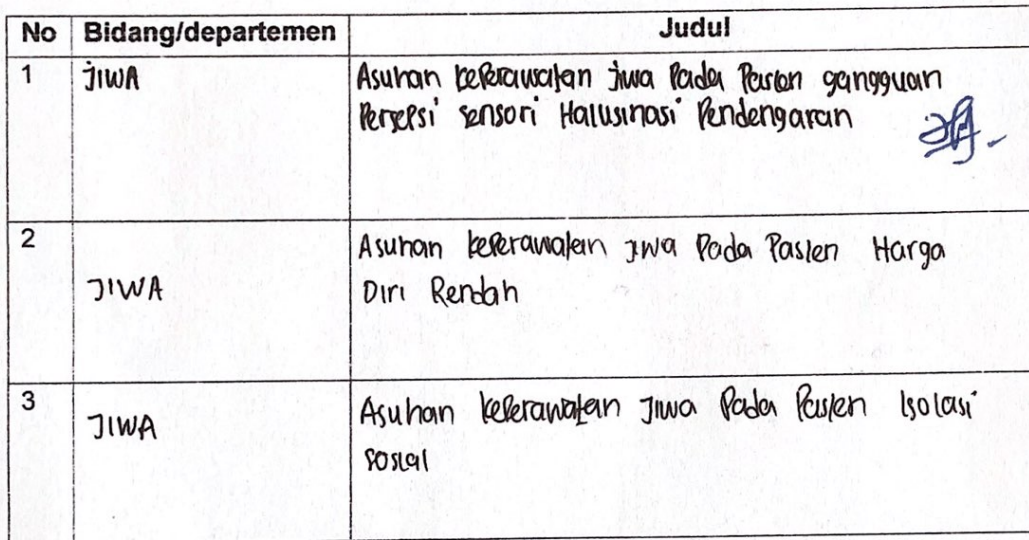 No Bidang/departemen Judul
1 JIWA Asuhan keperawatan jiwa Pada Pasien gangguan
Persepsi sensori Halusinasi Pendengaran
2 Asuhan keperawatan Jiwa Pada Pasien Harga
JIWA Diri Rendah
3 JIWA Asuhan keperawatan Jiwa Pada Pasien Isolasi
sosial